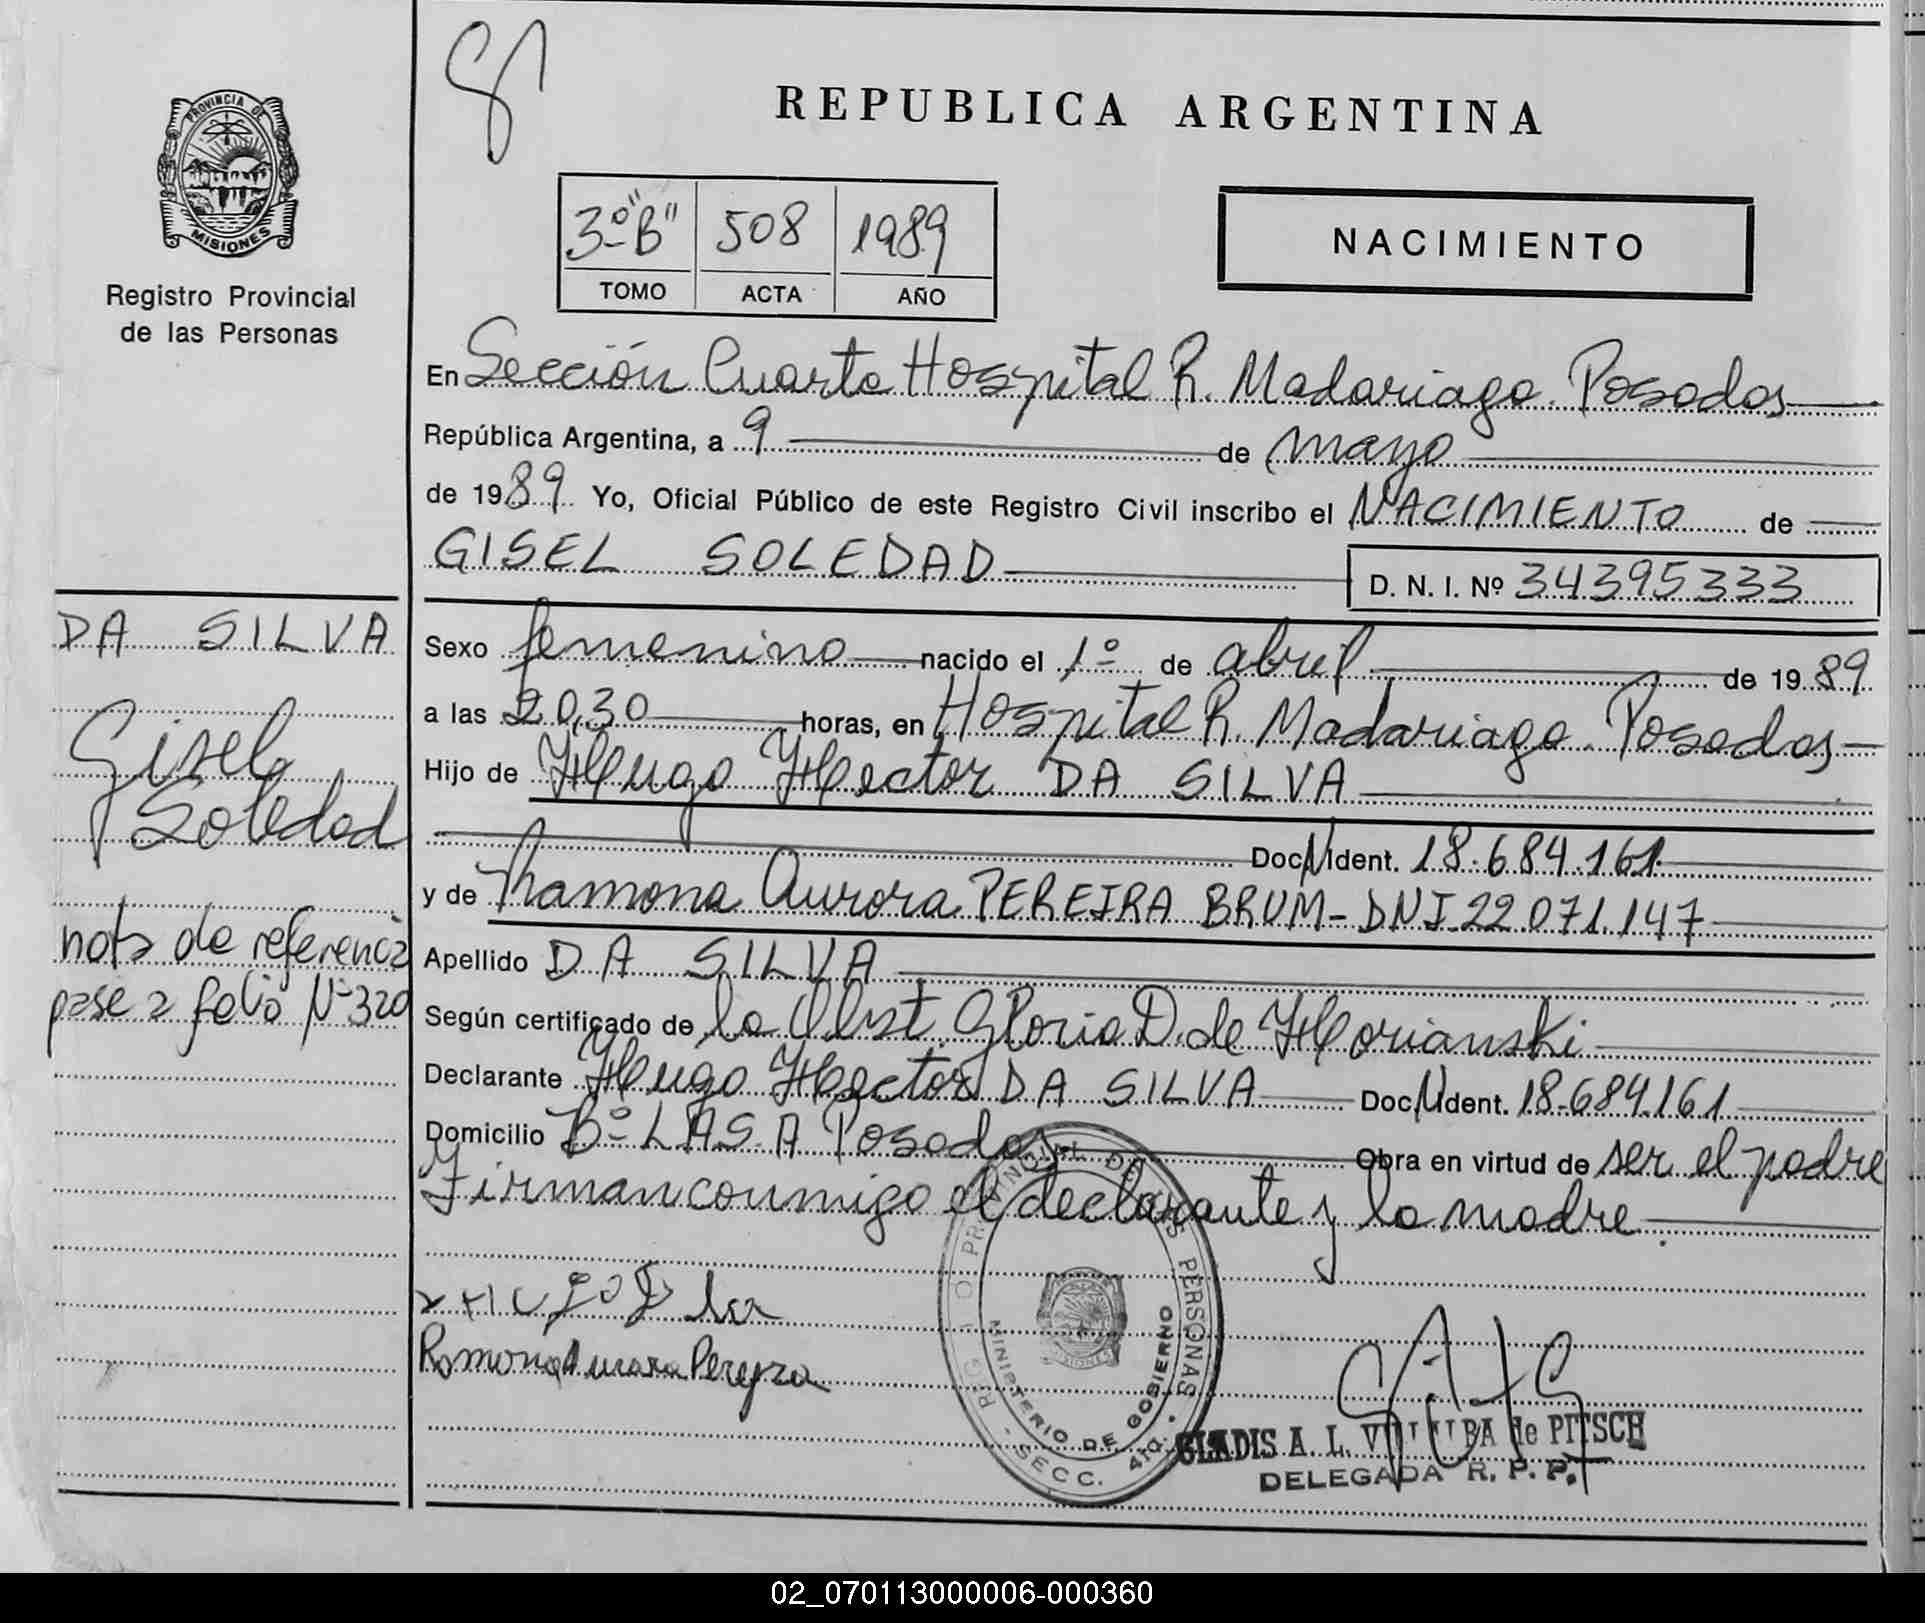 PROVINCIA DE
MISIONES
Registro Provincial
de las Personas
REPUBLICA ARGENTINA
3º "B" 508 1989
TOMO ACTA AÑO
NACIMIENTO
En Sección Cuarta Hospital R. Madariaga. Posadas
República Argentina, a 9 de mayo
de 1989 Yo, Oficial Público de este Registro Civil inscribo el NACIMIENTO de
GISEL SOLEDAD D. N. I. Nº 34395333
DA SILVA
Gisel
Soledad
nota de referencia
pase a folio Nº 320
Sexo femenino nacido el 1º de abril de 1989
a las 20,30 horas, en Hospital R. Madariaga. Posadas
Hijo de Hugo Hector DA SILVA
Doc. N. Ident. 18.684.161
y de Ramona Aurora PEREIRA BRUM - DNI 22.071.147
Apellido DA SILVA
Según certificado de la Obst. Gloria D. de Horianski
Declarante Hugo Hector DA SILVA Doc. N. Ident. 18.684.161
Domicilio Bº L.A.S.A Posadas Obra en virtud de ser el padre
Firman conmigo el declarante y la madre.
REGISTRO PROVINCIAL DE LAS PERSONAS
MINISTERIO DE GOBIERNO
- SECC. 4ta. -
Ramona Aurora Pereyra
GLADIS A. L. de PITSCH
DELEGADA R. P. P.
02_070113000006-000360